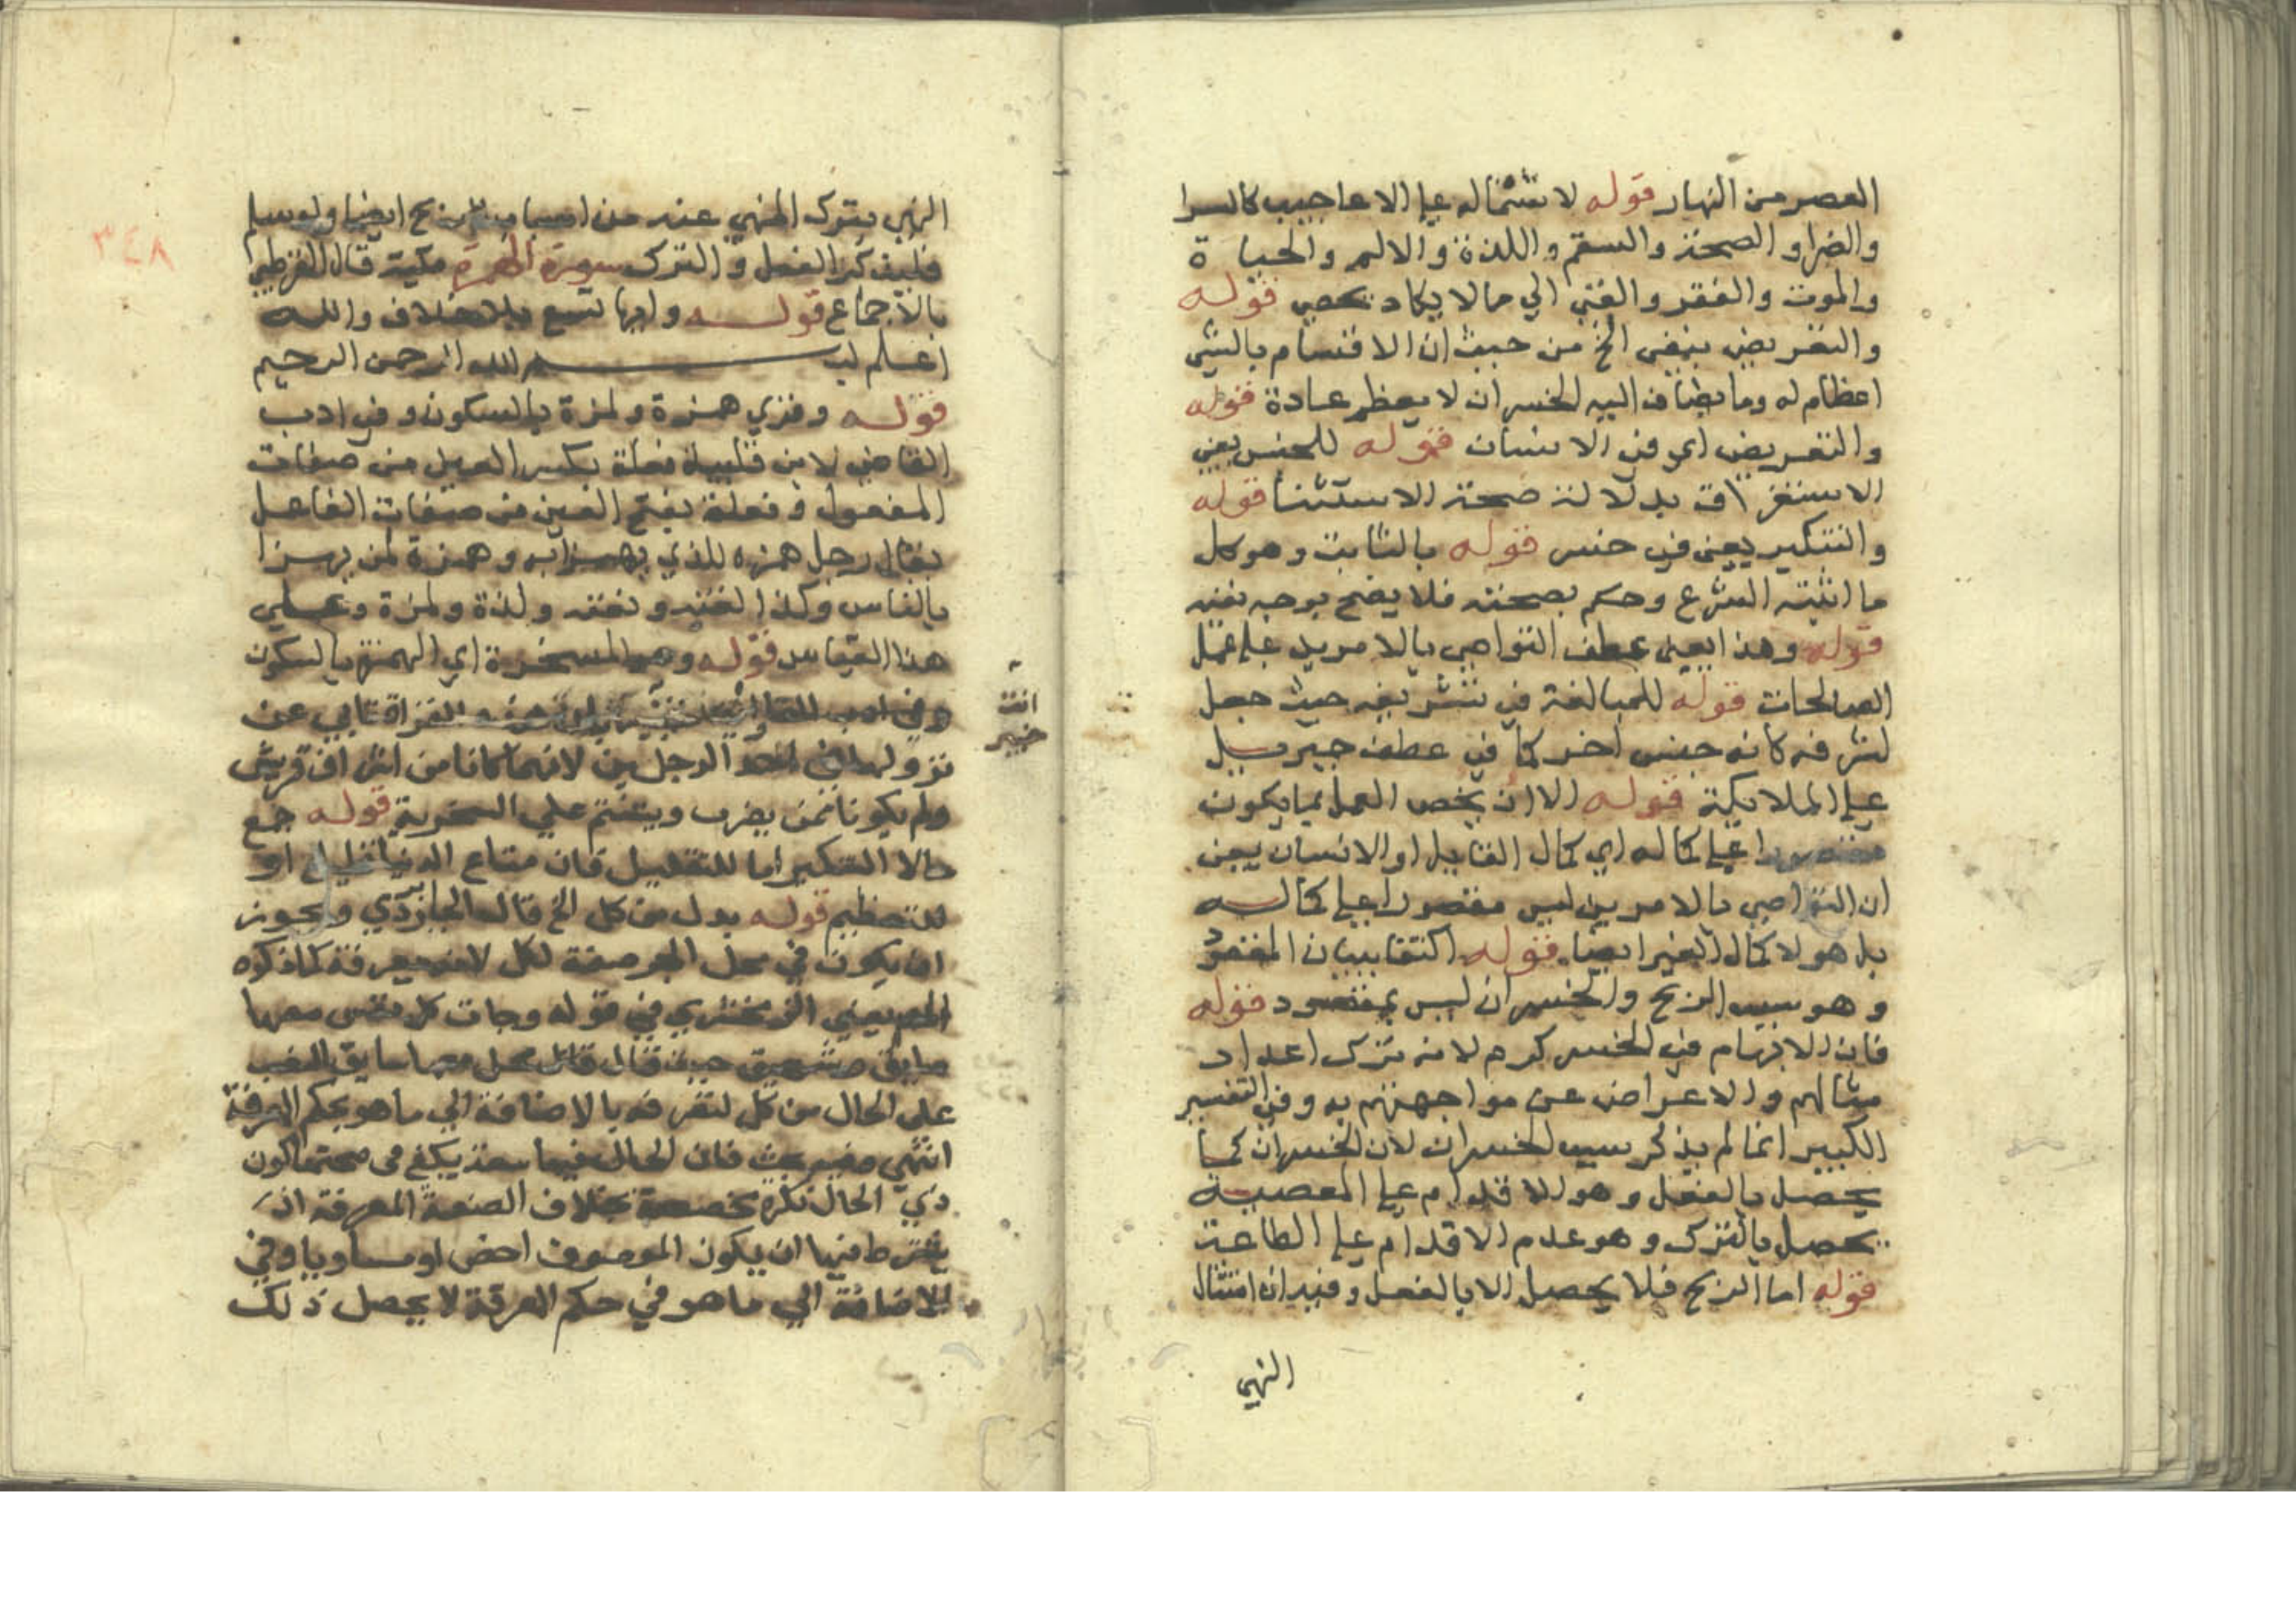 العصر من النهار قوله لاشتماله علي الاعاجيب كالسرا
والضراو الصحة والسقم واللذة والالم والحياة
والموت والفقر والغني الي مالا يكاد يحصي قوله
والتعريض بنفي الخ من حيث ان الاقسام بالشي
اعظام له وما يضاف اليه الخسران لا يعظم عادة قوله
والتعريض اي في الانسان قوله للجنس يعني
الاستغراق بدلالة صحة الاستثنا قوله
والتنكير يعني في خسر قوله بالثابت وهو كل
ما اثبته الشرع وحكم بصحته فلا يصح بوجه نفيه
قوله وهذا يعني عطف التواصي بالامرين علي عمل
الصالحات قوله للمبالغة في تشريفه حيث جعل
لشرفه كانه جنس اخر كما في عطف جبريل
علي الملايكة قوله الا ان يخص العمل بما يكون
مقصورا علي كماله اي كمال القايل او الانسان يعني
ان التواصي بالامرين ليس مقصورا علي كماله
بل هو لاكمال الغير ايضا قوله اكتفا ببيان المقصود
وهو سبب الربح والخسران ليس بمقصود قوله
فان الابهام في الخسر كرم لانه ترك اعداد
مثالبهم والاعراض عن مواجهتهم به وفي التفسير
الكبير انما لم يذكر سبب الخسران لان الخسران كما
يحصل بالفعل وهو الاقدام علي المعصية
يحصل بالترك وهو عدم الاقدام علي الطاعة
قوله اما الربح فلا يحصل الا بالفعل وفيه ان امتثال
النهي
٣٤٨
النهي بترك المنهي عنه من اسباب الربح ايضا ولو سلم
فليذكر الفعل والترك سورة الهمزة مكية قال القرطبي
بالاجماع قوله وايها تسع بلا خلاف والله
اعلم بسم الله الرحمن الرحيم
قوله وقري همزة ولمزة بالسكون وفي ادب
القاضي لابن قتيبة فعلة بسكون العين من صفات
المفعول وفعلة بفتح العين من صفات الفاعل
يقال رجل همزه للذي يهمز به وهمزة لمن يهزا
بالناس وكذا لعنه ولعنه ولمزة ولمزة وعلي
هذا القياس قوله وهو المسخرة اي الهمزة بالسكون
انت
خبير
نزولها في احد الرجلين لانهما كانا من اشراف قريش
ولم يكونا ممن يضرب ويشتم علي السخرية قوله جمع
مالا التنكير اما للتقليل فان متاع الدنيا قليل او
للتعظيم قوله بدل من كل الخ قال الجاربردي ويجوز
ان يكون في محل الجر صفة لكل لانه معرفة كما ذكره
المص يعني الزمخشري في قوله وجات كل نفس معها
سايق وشهيد حيث قال قال محل معها سايق النصب
علي الحال من كل لتعرفه بالاضافة الي ما هو بحكم المعرفة
انتهي وفيه بحث فان الحال فيما بعد يكفي في صحتها كون
ذي الحال نكرة مخصصة بخلاف الصفة المعرفة اذ
يشترط فيها ان يكون الموصوف اخص او مساويا وفي
الاضافة الي ما هو في حكم المعرفة لا يحصل ذلك